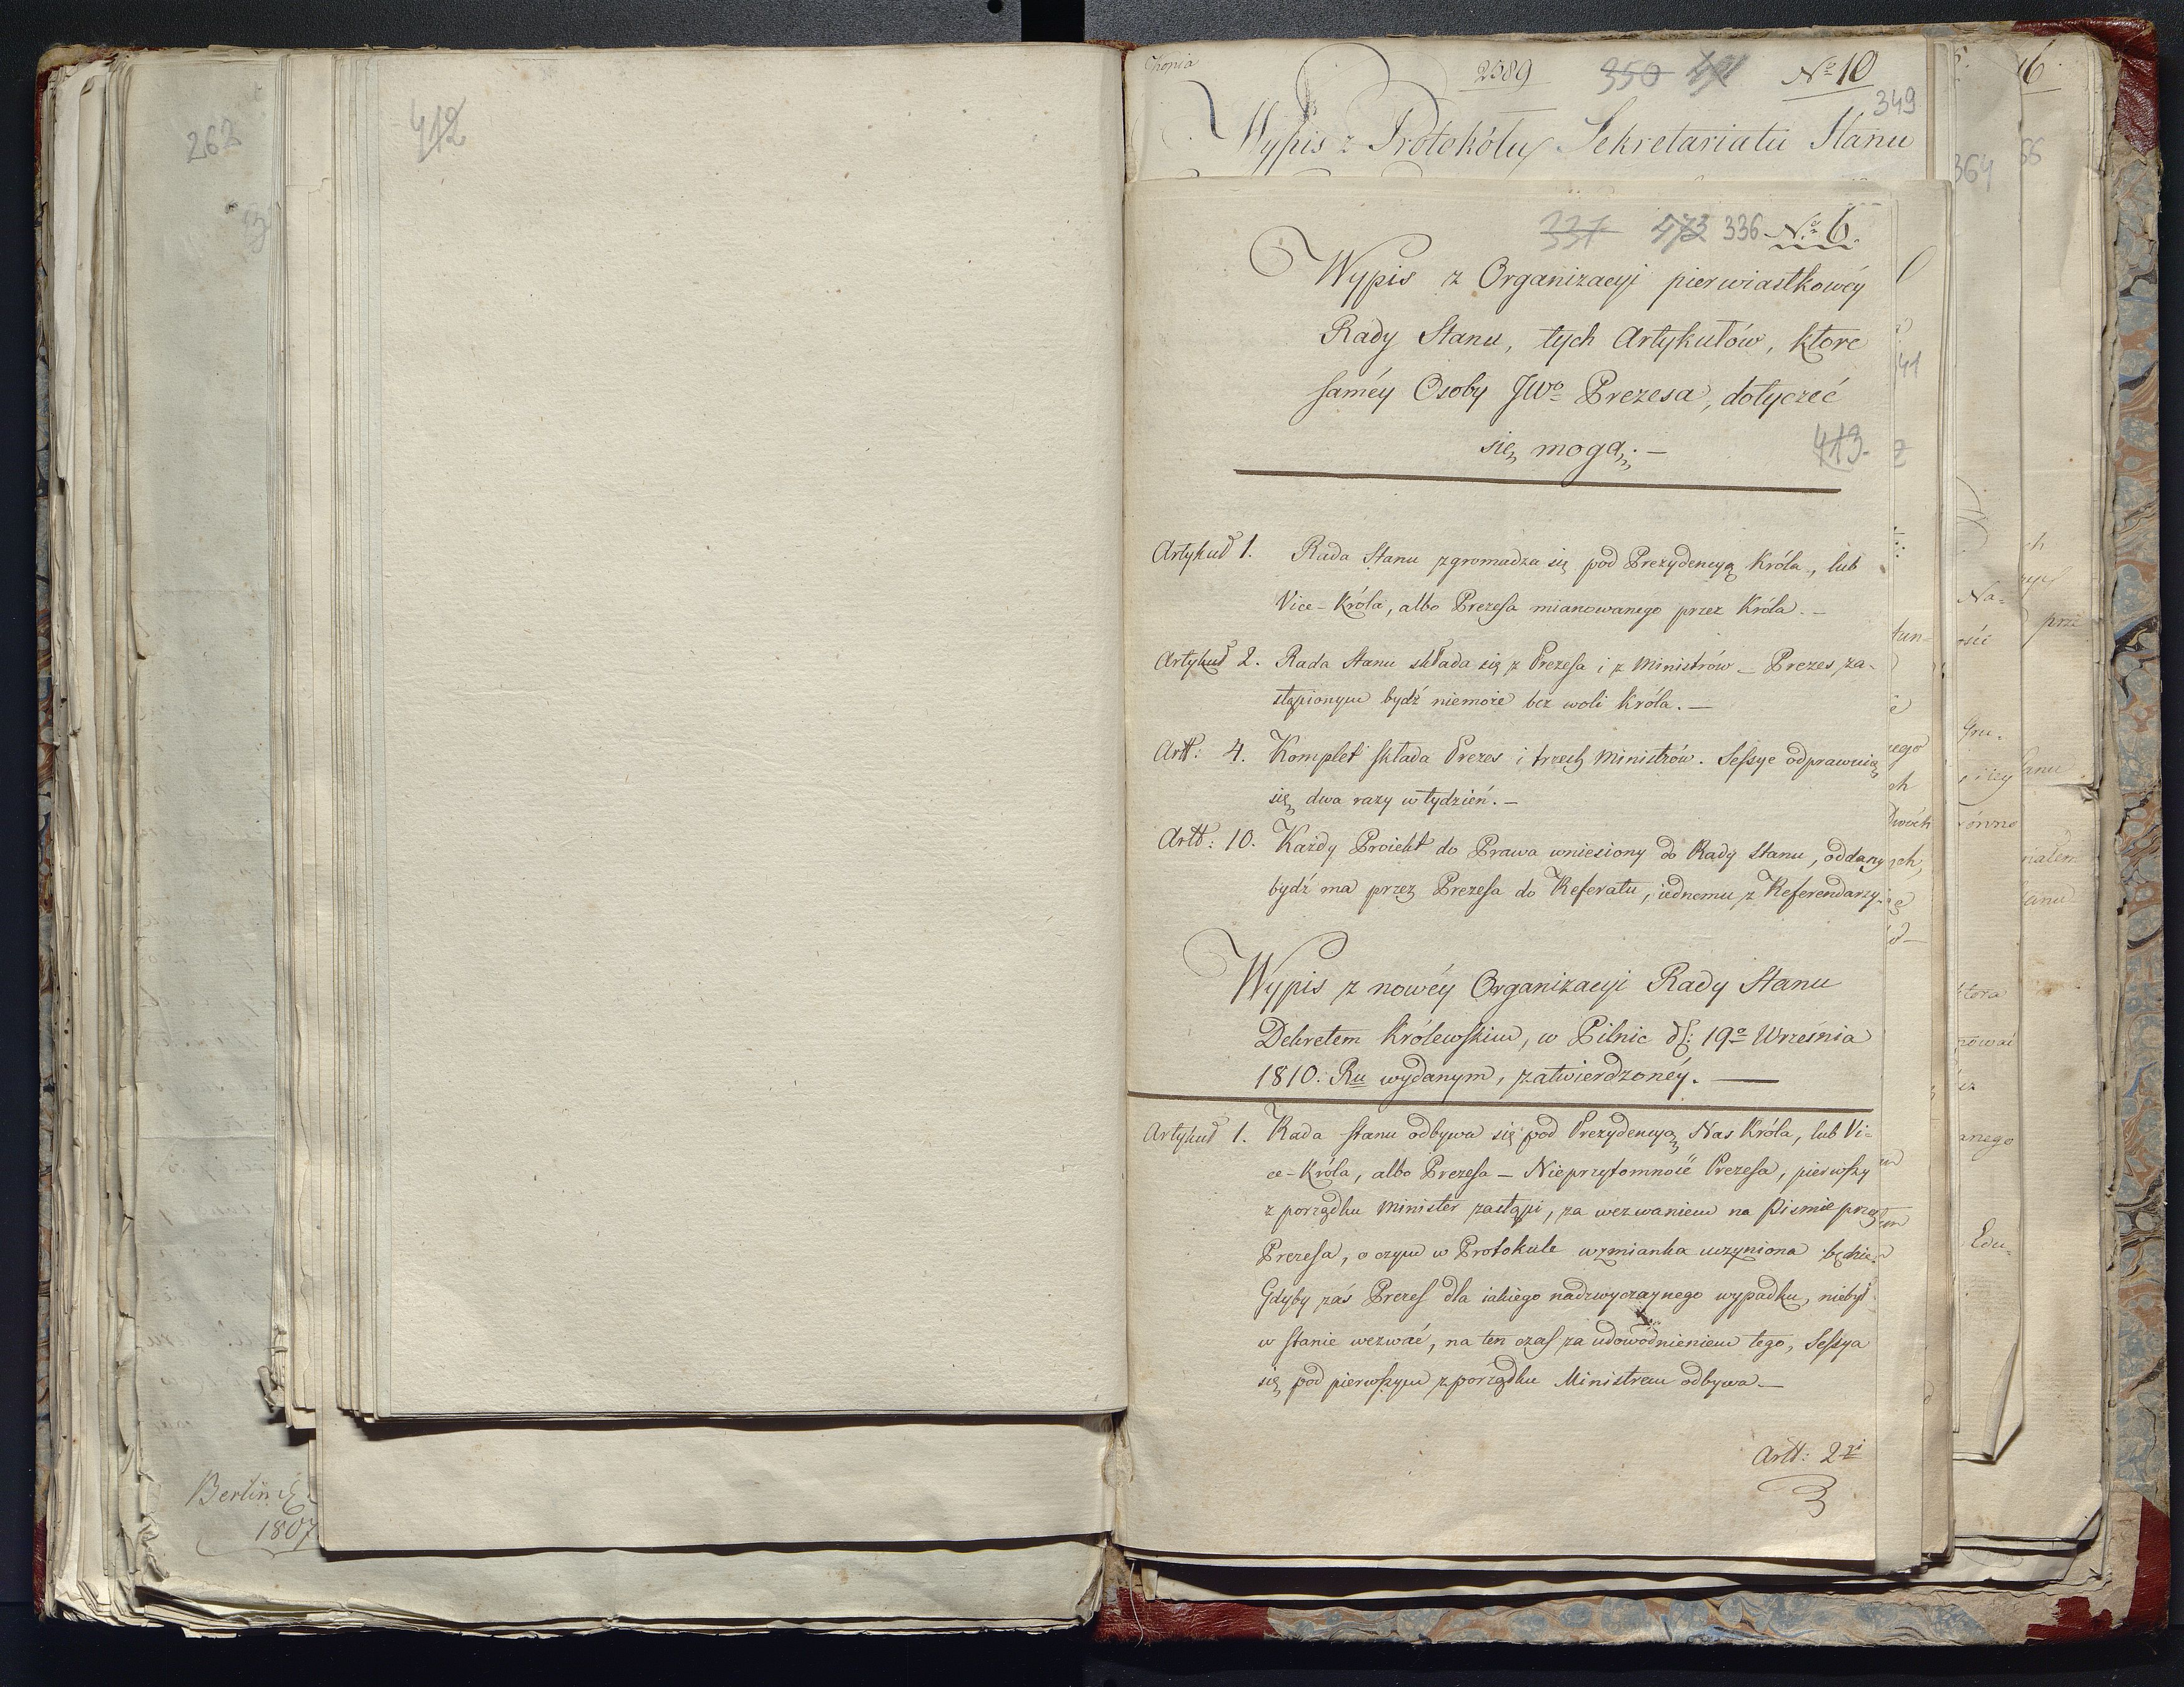 262
412
Berlin
1807
Kopia
2589 350 491 No 10
349
Wypis z Protokółu Sekretariatu Stanu
364
337 473 336 No 6.
Wypis z Organizacyi pierwiastkowéy
Rady Stanu, tych Artykułów, ktore
saméy Osoby JWo Prezesa, dotyczeć
się mogą. —
413.
Artykuł 1. Rada Stanu zgromadza się pod Prezydencyą Króla, lub
Vice-Króla, albo Prezesa mianowanego przez Króla. —
Artykuł 2. Rada Stanu składa się z Prezesa i z Ministrów — Prezes za-
stąpionym bydź niemoże bez woli Króla. —
Artt: 4. Komplet składa Prezes i trzech Ministrów. Sessye odprawuią
się dwa razy w tydzień. —
Artt: 10. Każdy Proiekt do Prawa wniesiony do Rady Stanu, oddany
bydź ma przez Prezesa do Referatu, iednemu z Referendarzy.
Wypis z nowéy Organizacyi Rady Stanu
Dekretem Królewskim, w Pilnic d: 19o Września
1810. Ru wydanym, zatwierdzonéy. —
Artykuł 1. Rada Stanu odbywa się pod Prezydencyą Nas Króla, lub Vi-
ce-Króla, albo Prezesa — Nieprzytomność Prezesa, pierwszy
z porządku Minister zastąpi, za wezwaniem na Pismie przez
Prezesa, o czym w Protokule wzmianka uczyniona będzie.
Gdyby zaś Prezes dla iakiego nadzwyczaynego wypadku, niebył
w stanie wezwać, na ten czas za udowodnieniem tego, Sessya
się pod pierwszym z porządku Ministrem odbywa —
Artt: 2gi